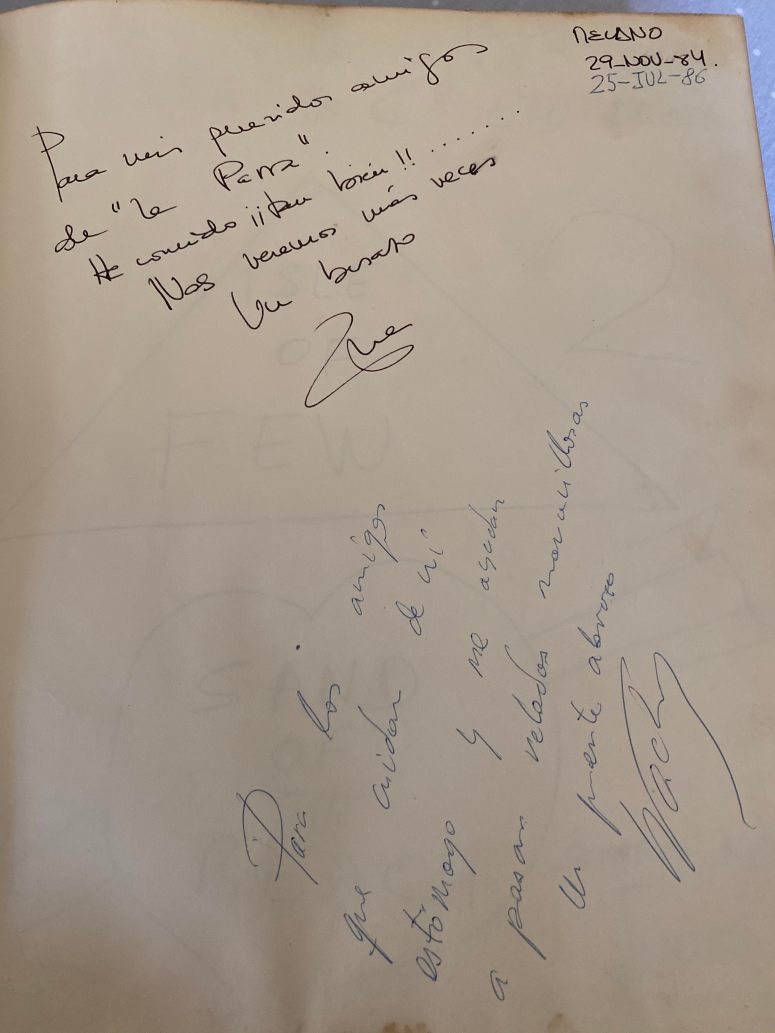 MECANO
29-NOV-84.
25-JUL-86
Para mis queridos amigos
de "La Parra".
He comido ¡¡tan bien!! .......
Nos veremos más veces
Un besazo
Ana
Para los amigos
que cuidan de mi
estómago y me ayudan
a pasar veladas maravillosas
Un fuerte abrazo
Nacho